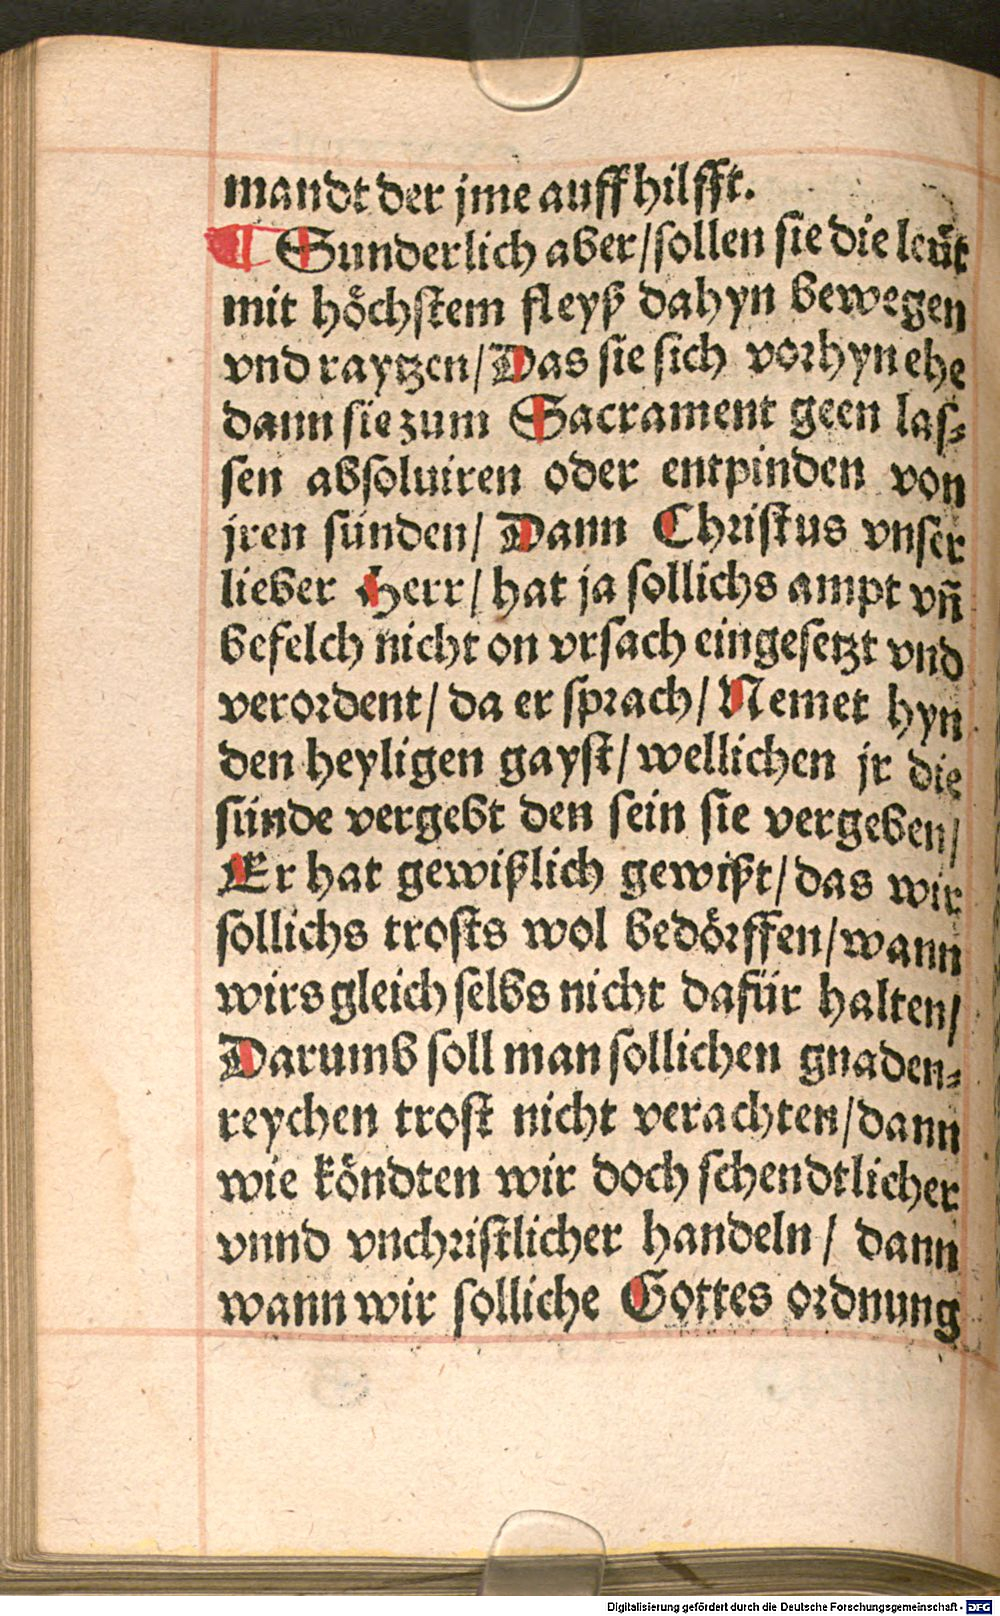 mandt der jme auff hilfft.
¶ Sunderlich aber/sollen sie die leüt
mit höchstem fleyß dahyn bewegen
vnd raytzen/Das sie sich vorhyn ehe
dann sie zum Sacrament geen las⸗
sen absoluiren oder entpinden von
jren sünden/ Dann Christus vnser
lieber Herr/ hat ja sollichs ampt vñ
befelch nicht on vrsach eingesetzt vnd
verordent/ da er sprach/ Nemet hyn
den heyligen gayst/ wellichen jr die
sünde vergebt den sein sie vergeben/
Er hat gewißlich gewißt/ das wir
sollichs trosts wol bedörffen/wann
wirs gleich selbs nicht dafür halten/
Darumb soll man sollichen gnaden⸗
reychen trost nicht verachten/dann
wie köndten wir doch schendtlicher
vnnd vnchristlicher handeln/ dann
wann wir solliche Gottes ordnung
Digitalisierung gefördert durch die Deutsche Forschungsgemeinschaft - DFG